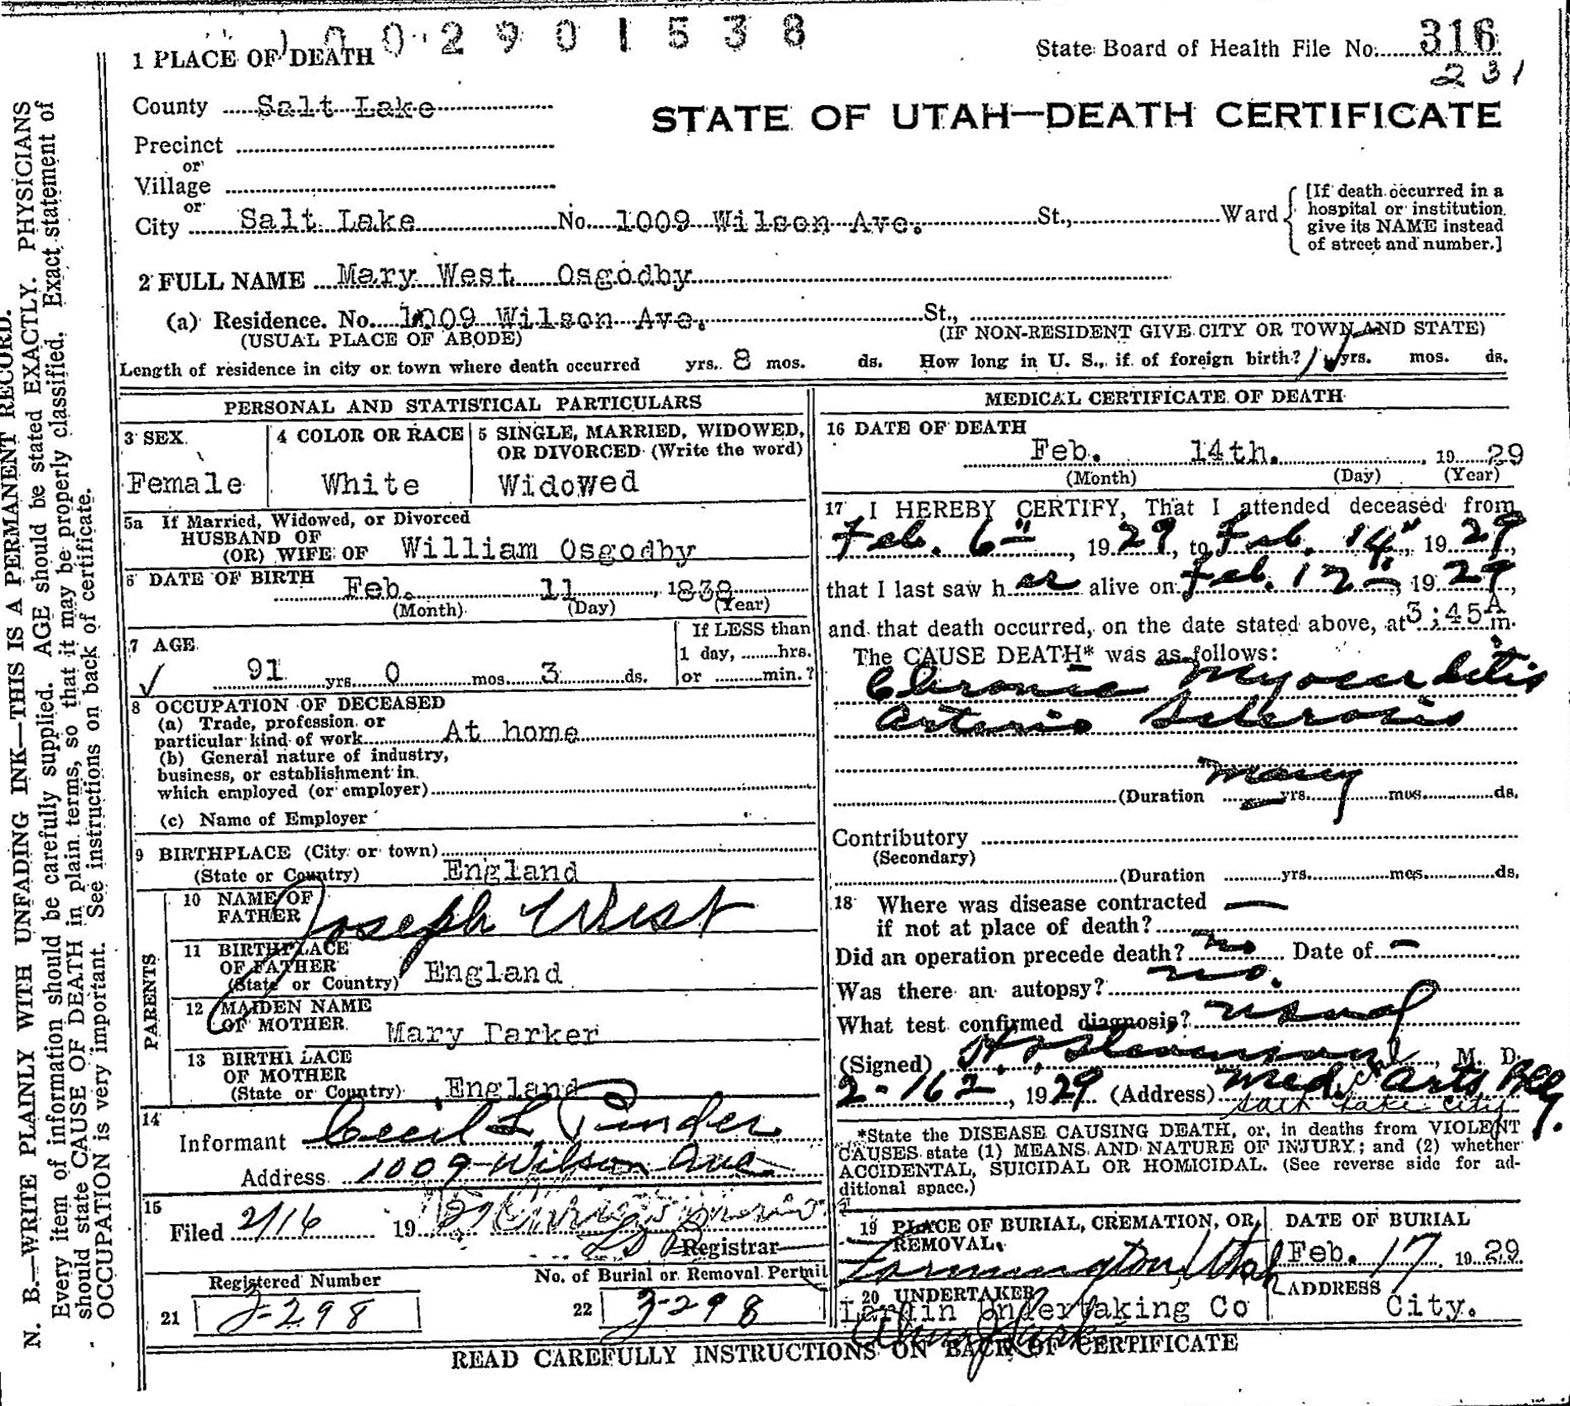 1 0 0 2 9 0 1 5 3 8
1 PLACE OF DEATH
State Board of Health File No. 316
231
County Salt Lake
STATE OF UTAH—DEATH CERTIFICATE
Precinct
or
Village
or
City Salt Lake No. 1009 Wilson Ave. St., Ward
[If death occurred in a
hospital or institution
give its NAME instead
of street and number.]
2 FULL NAME Mary West Osgodby
(a) Residence. No. 1009 Wilson Ave. St.,
(USUAL PLACE OF ABODE) (IF NON-RESIDENT GIVE CITY OR TOWN AND STATE)
Length of residence in city or town where death occurred yrs. 8 mos. ds. How long in U. S., if of foreign birth? yrs. mos. ds.
PERSONAL AND STATISTICAL PARTICULARS
3 SEX
Female
4 COLOR OR RACE
White
5 SINGLE, MARRIED, WIDOWED,
OR DIVORCED (Write the word)
Widowed
5a If Married, Widowed, or Divorced
HUSBAND OF
(OR) WIFE OF William Osgodby
6 DATE OF BIRTH Feb. 11, 1838
(Month) (Day) (Year)
7 AGE
91 yrs. 0 mos. 3 ds.
If LESS than
1 day, hrs.
or min.?
8 OCCUPATION OF DECEASED
(a) Trade, profession or
particular kind of work At home
(b) General nature of industry,
business, or establishment in
which employed (or employer)
(c) Name of Employer
9 BIRTHPLACE (City or town)
(State or Country) England
PARENTS
10 NAME OF
FATHER Joseph West
11 BIRTHPLACE
OF FATHER
(State or Country) England
12 MAIDEN NAME
OF MOTHER Mary Parker
13 BIRTHPLACE
OF MOTHER
(State or Country) England
14
Informant Cecil L Pinder
Address 1009 Wilson Ave
15
Filed 2/16 19
Registrar
Registered Number
21 2-298
No. of Burial or Removal Permit
22 2-298
MEDICAL CERTIFICATE OF DEATH
16 DATE OF DEATH
Feb. 14th., 19 29
(Month) (Day) (Year)
17 I HEREBY CERTIFY, That I attended deceased from
Feb. 6th, 19 29, to Feb. 14", 19 29,
that I last saw h er alive on Feb. 12th, 19 29,
and that death occurred, on the date stated above, at 3:45 A m.
The CAUSE DEATH* was as follows:
Chronic Myocarditis
Arterio Sclerosis
many
(Duration yrs. mos. ds.
Contributory
(Secondary)
(Duration yrs. mos. ds.
18 Where was disease contracted —
if not at place of death?
Did an operation precede death? no Date of —
Was there an autopsy? no.
What test confirmed diagnosis? usual
(Signed) , M. D.
2-16, 1929 (Address) Med. Arts Bldg.
Salt Lake City
*State the DISEASE CAUSING DEATH, or, in deaths from VIOLENT
CAUSES state (1) MEANS AND NATURE OF INJURY; and (2) whether
ACCIDENTAL, SUICIDAL OR HOMICIDAL. (See reverse side for ad-
ditional space.)
19 PLACE OF BURIAL, CREMATION, OR
REMOVAL.
Farmington, Utah
DATE OF BURIAL
Feb. 17 19 29
20 UNDERTAKER
Larkin Undertaking Co
ADDRESS
City.
READ CAREFULLY INSTRUCTIONS ON BACK OF CERTIFICATE
N. B.—WRITE PLAINLY WITH UNFADING INK—THIS IS A PERMANENT RECORD.
Every item of information should be carefully supplied. AGE should be stated EXACTLY. PHYSICIANS
should state CAUSE OF DEATH in plain terms, so that it may be properly classified. Exact statement of
OCCUPATION is very important. See instructions on back of certificate.